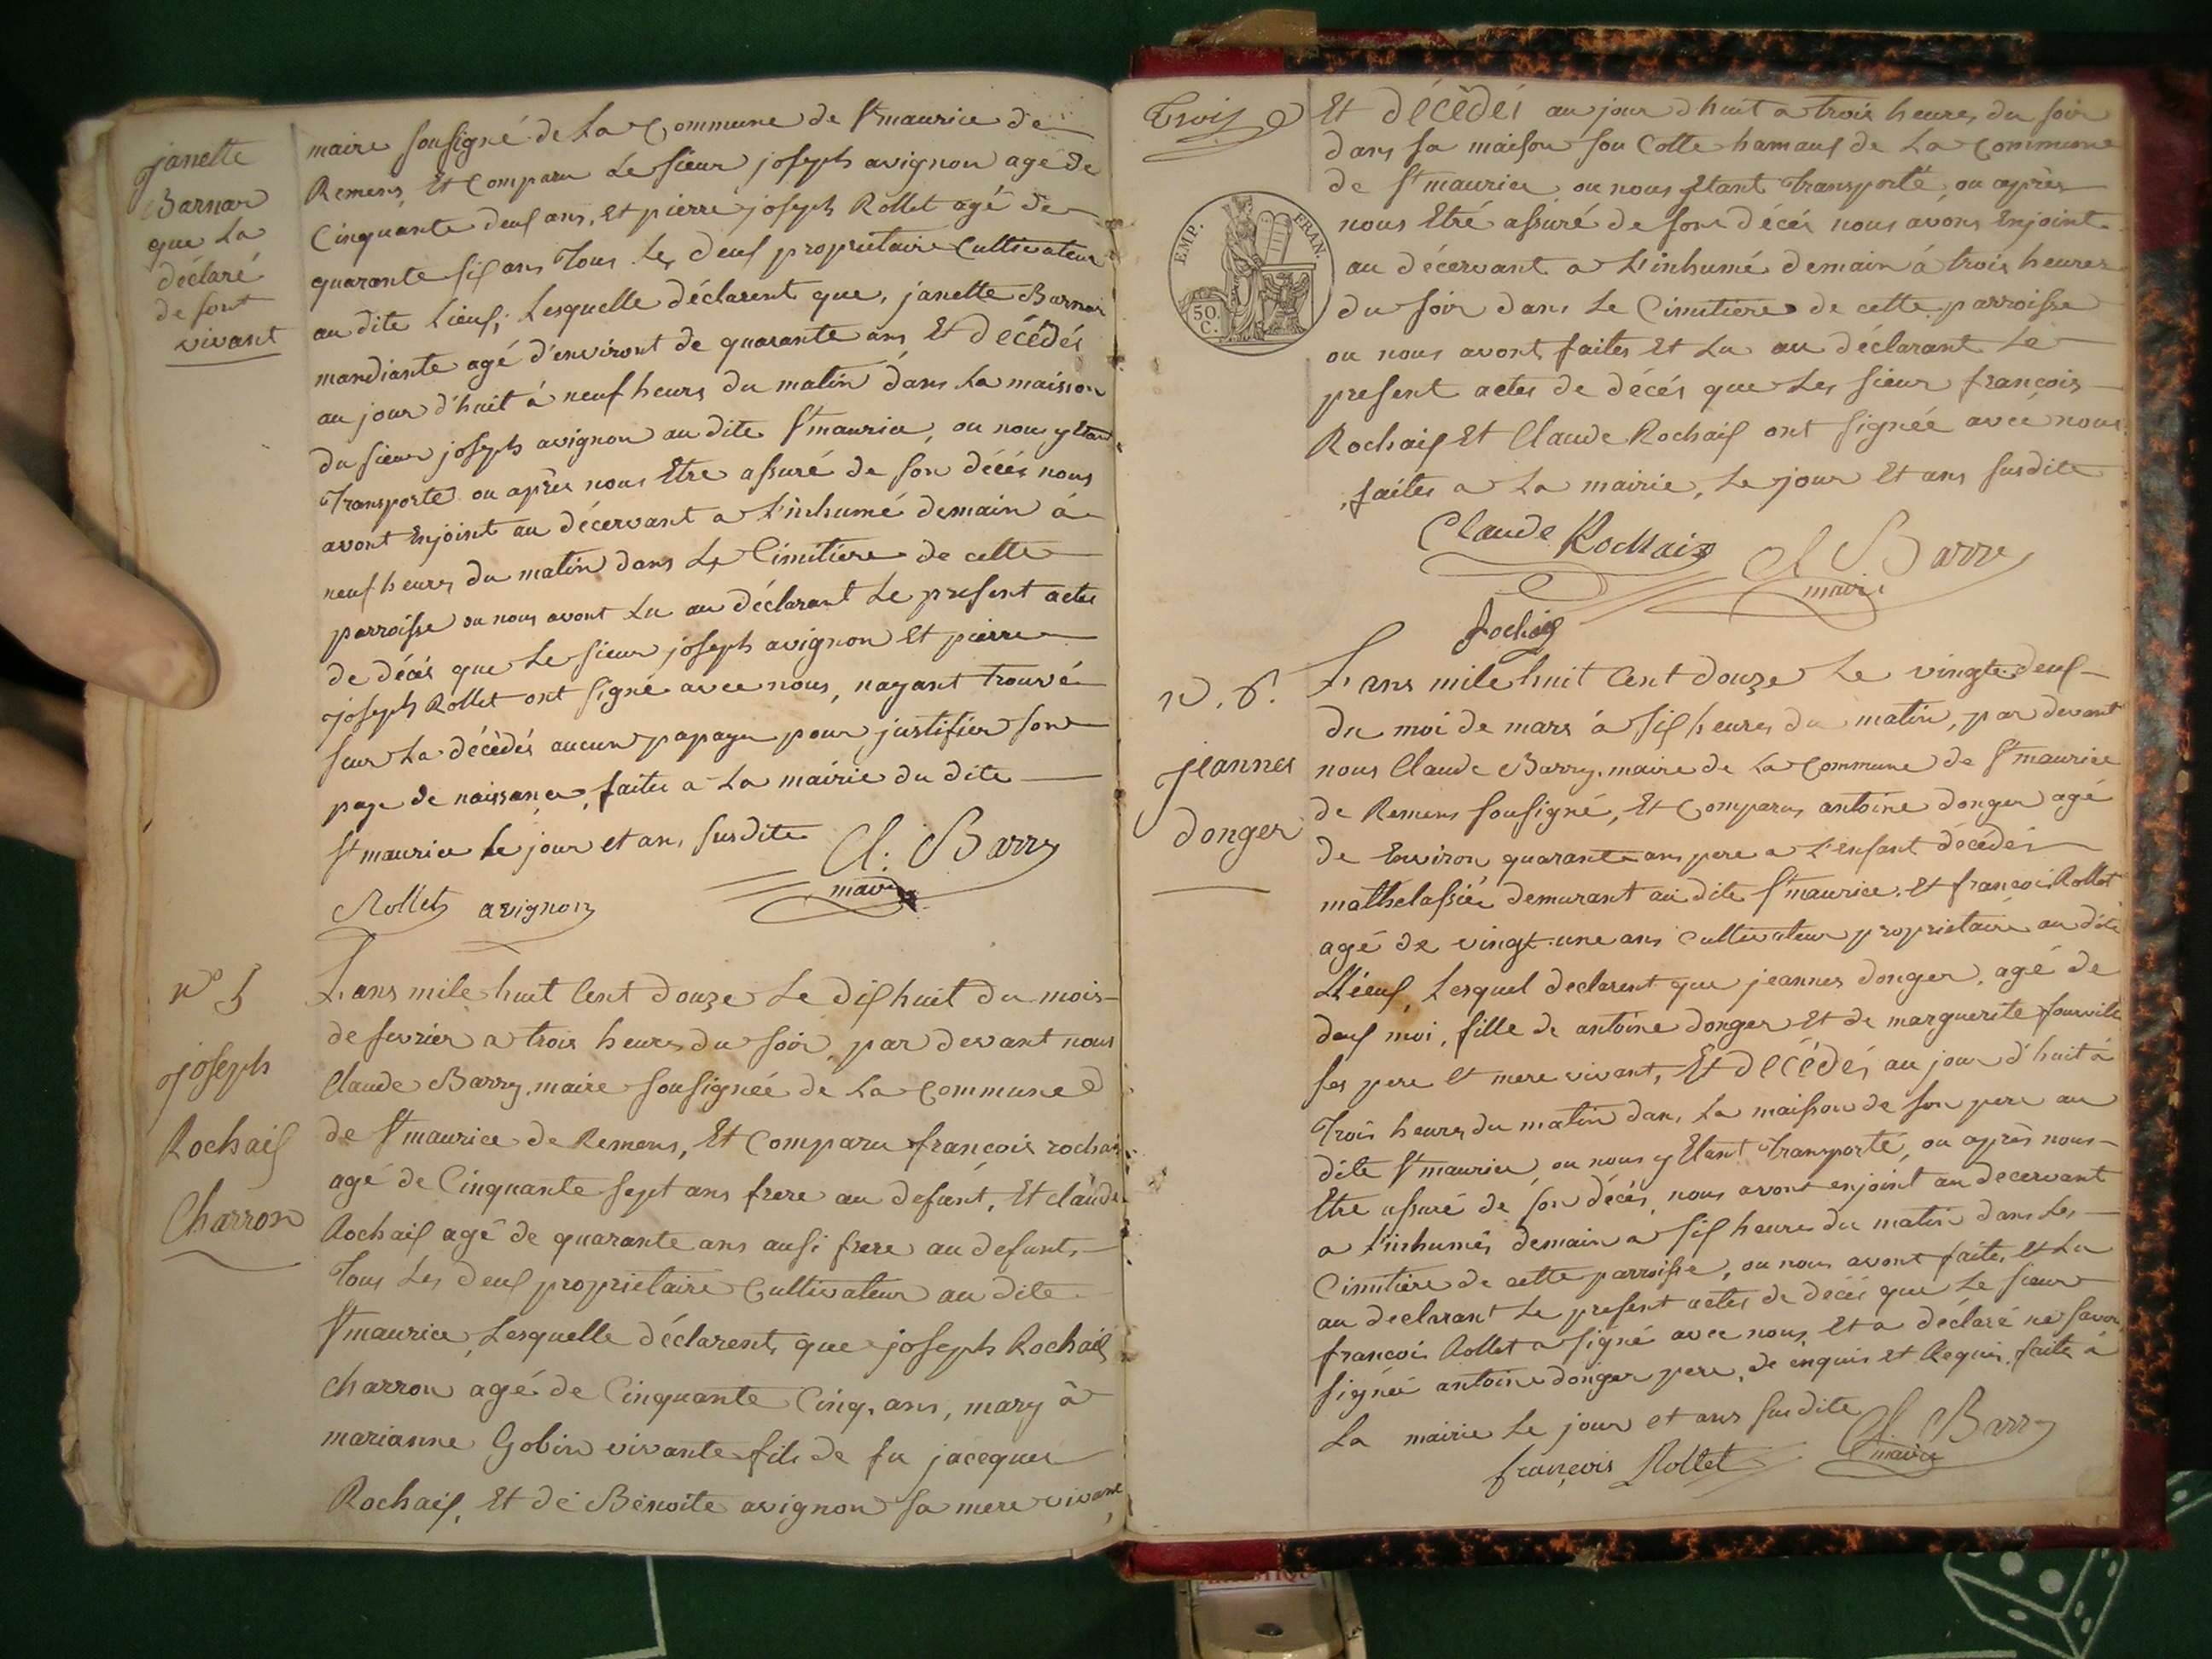 janette
Barnar
que La
déclaré
de sont
vivant
maire sousigné de La Commune de St maurice de
Remens, Et Comparu Le sieur joseph avignon agé de
Cinquante deux ans, Et pierre joseph Rollet agé de
quarante six ans Tous Les deux proprietaire Cultivateur
au dite Lieux, Lesquelle déclarent que, janette Barnar
mandiante agé d'environt de quarante ans Et Décédés
au jour d'huit à neuf heurs du matin dans La maison
du sieur joseph avignon au dite St maurice, ou nou y Etant
Transporté ou après nous Etre assuré de son décés nous
avont Enjoint au décervant a L'inhumé demain à
neuf heures du matin dans Le Cimitiere de cette
parroisse ou nous avont Lu au déclarant Le present actes
de décés que Le sieur joseph avignon Et pierre
joseph Rollet ont signé avec nous, nayant trouvé
sur La décédés aucun papage pour justifier son
page de naissance, faites a La mairie du dite
St maurice Le jour et ans susdite
Cl. Barry
maire
Rollet avignon
no 5
joseph
Rochaix
Charron
L'ans mile huit Cent douze Le dix huit du mois
de fevrier a trois heures du soir, par devant nous
Claude Barry, maire sousignée de La Commune
de St maurice de Remens, Et Comparu françois rochaix
agé de Cinquante sept ans frere au defunt, Et claude
Rochaix agé de quarante ans ausi frere au defunt,
Tous Les deux proprietaire Cultivateur au dite
St maurice, Lesquelle déclarent, que joseph Rochaix
charron agé de Cinquante Cinq, ans, mary à
marianne Gobin vivante fils de fu jacques
Rochaix, Et dé Bénoite avignon sa mere vivante,
Trois
Et Décédés au jour d'huit a trois heures du soir
dans sa maison sou Cotte hamaux de La Commune
de St maurice ou nous y Etant Transporté ou après
nous Etré assuré de son décés nous avons Enjoint
au décervant a L'inhumé demain à trois heures
du soir dans Le Cimitiere de cette parroisse
ou nous avont faites Et Lu au déclarant Le
present actes de décés que Les sieur françois
Rochaix Et Claude Rochaix ont signée avec nous
faites a La mairie, Le jour Et ans susdite
EMP. FRAN.
50 C.
Claude Rochaix
Cl Barry
maire
Rochaix
N. 6.
jeannes
donger
L'ans mile huit Cent douze Le vingte deux
du moi de mars à six heures du matin, par devant
nous Claude Barry, maire de La Commune de St maurice
de Remens sousigné, Et Comparus antoine donger agé
de Environ quarante ans pere a L'enfant décédés
mathelassiée demurant au dite St maurice, Et francois Rollet
agé de vingt-une ans cultivateur proprietaire au dite
Lieux, Lesquel declarent que jeannes donger, agé de
deux moi, fille de antoine donger Et de marguerite fourville
ses pere Et mere vivant, Et Décédés au jour d'huit à
Trois heures du matin dans La maison de son pere au
dite St maurice, ou nous y Etant Transporté, ou après nous
Etre assuré de son décés, nous avont enjoint au decervant
a L'inhumés demain a six heures du matin dans Les
Cimitiere de cette parroisse, ou nous avont faites Et Lu
au declarant Le present actes de décés que Le sieur
francois Rollet a signé avec nous, Et a déclaré ne savoir
signée antoine donger pere, de enquis et Requis, faite à
La mairie Le jour et ans susdite
Cl Barry
maire
françois Rollet